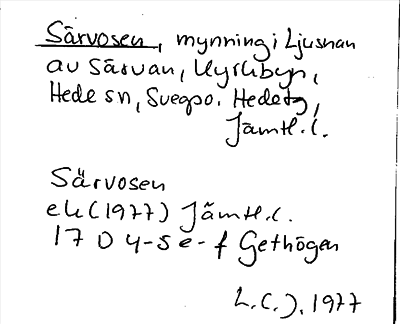 Särvosen, mynning i Ljusnan
av Särvan, Kyrkbyn,
Hede sn, Svegpo. Hede tg,
Jämtl. l.
Särvosen
ek (1977) Jämtl. l.
17 D 4-5 e-f Gethögen
L. C. J. 1977